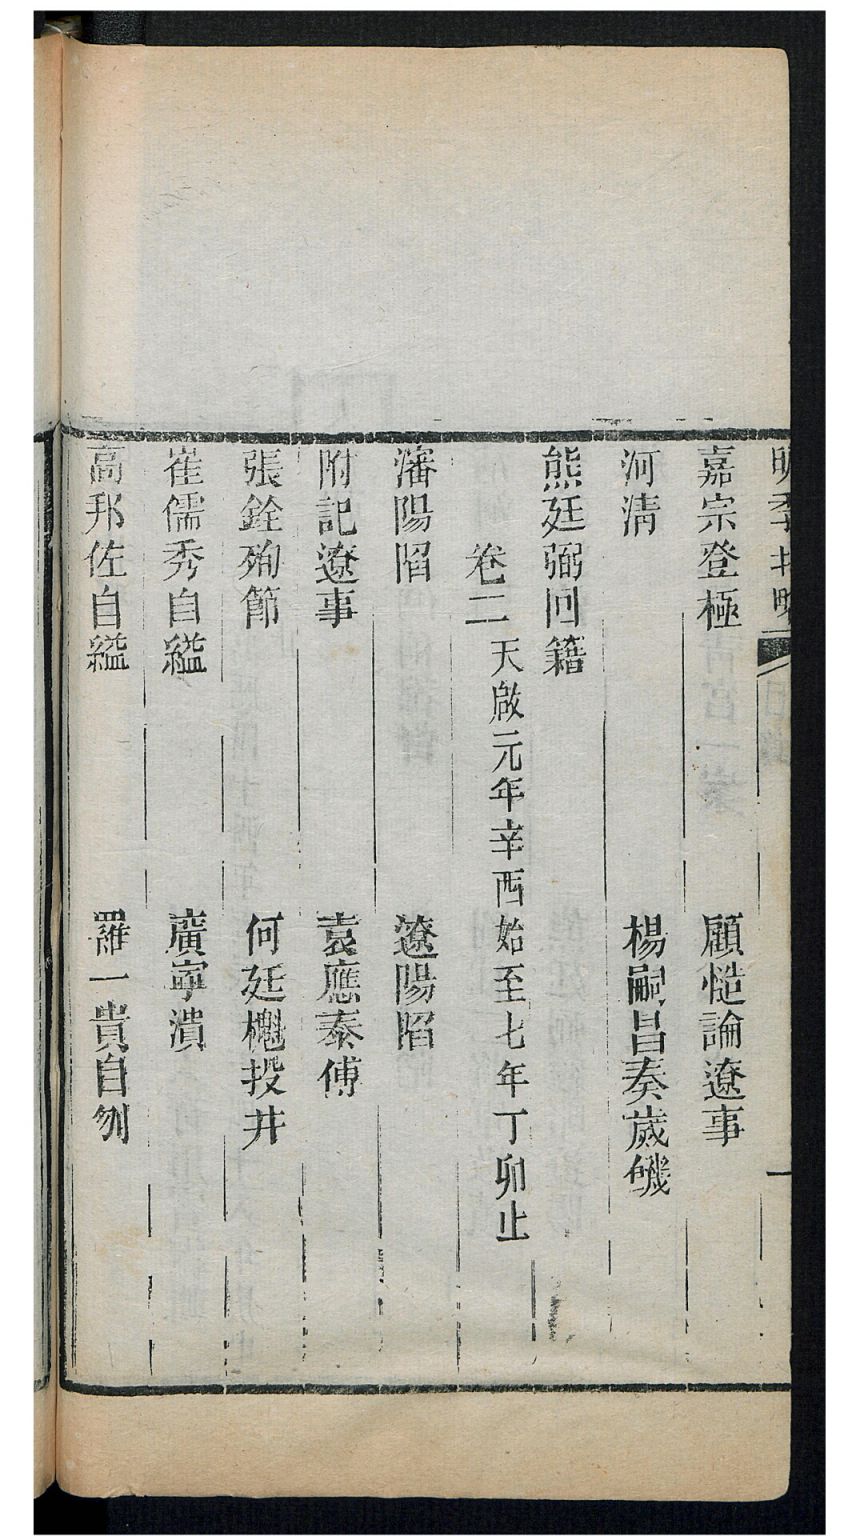 明季北略
一
嘉宗登極　顧慥論遼事
河清　楊嗣昌奏歲饑
熊廷弼回籍
卷二 天啟元年辛酉始至七年丁卯止
瀋陽陷　遼陽陷
附記遼事　袁應泰傳
張銓殉節　何廷櫆投井
崔儒秀自縊　廣寧潰
高邦佐自縊　羅一貴自刎